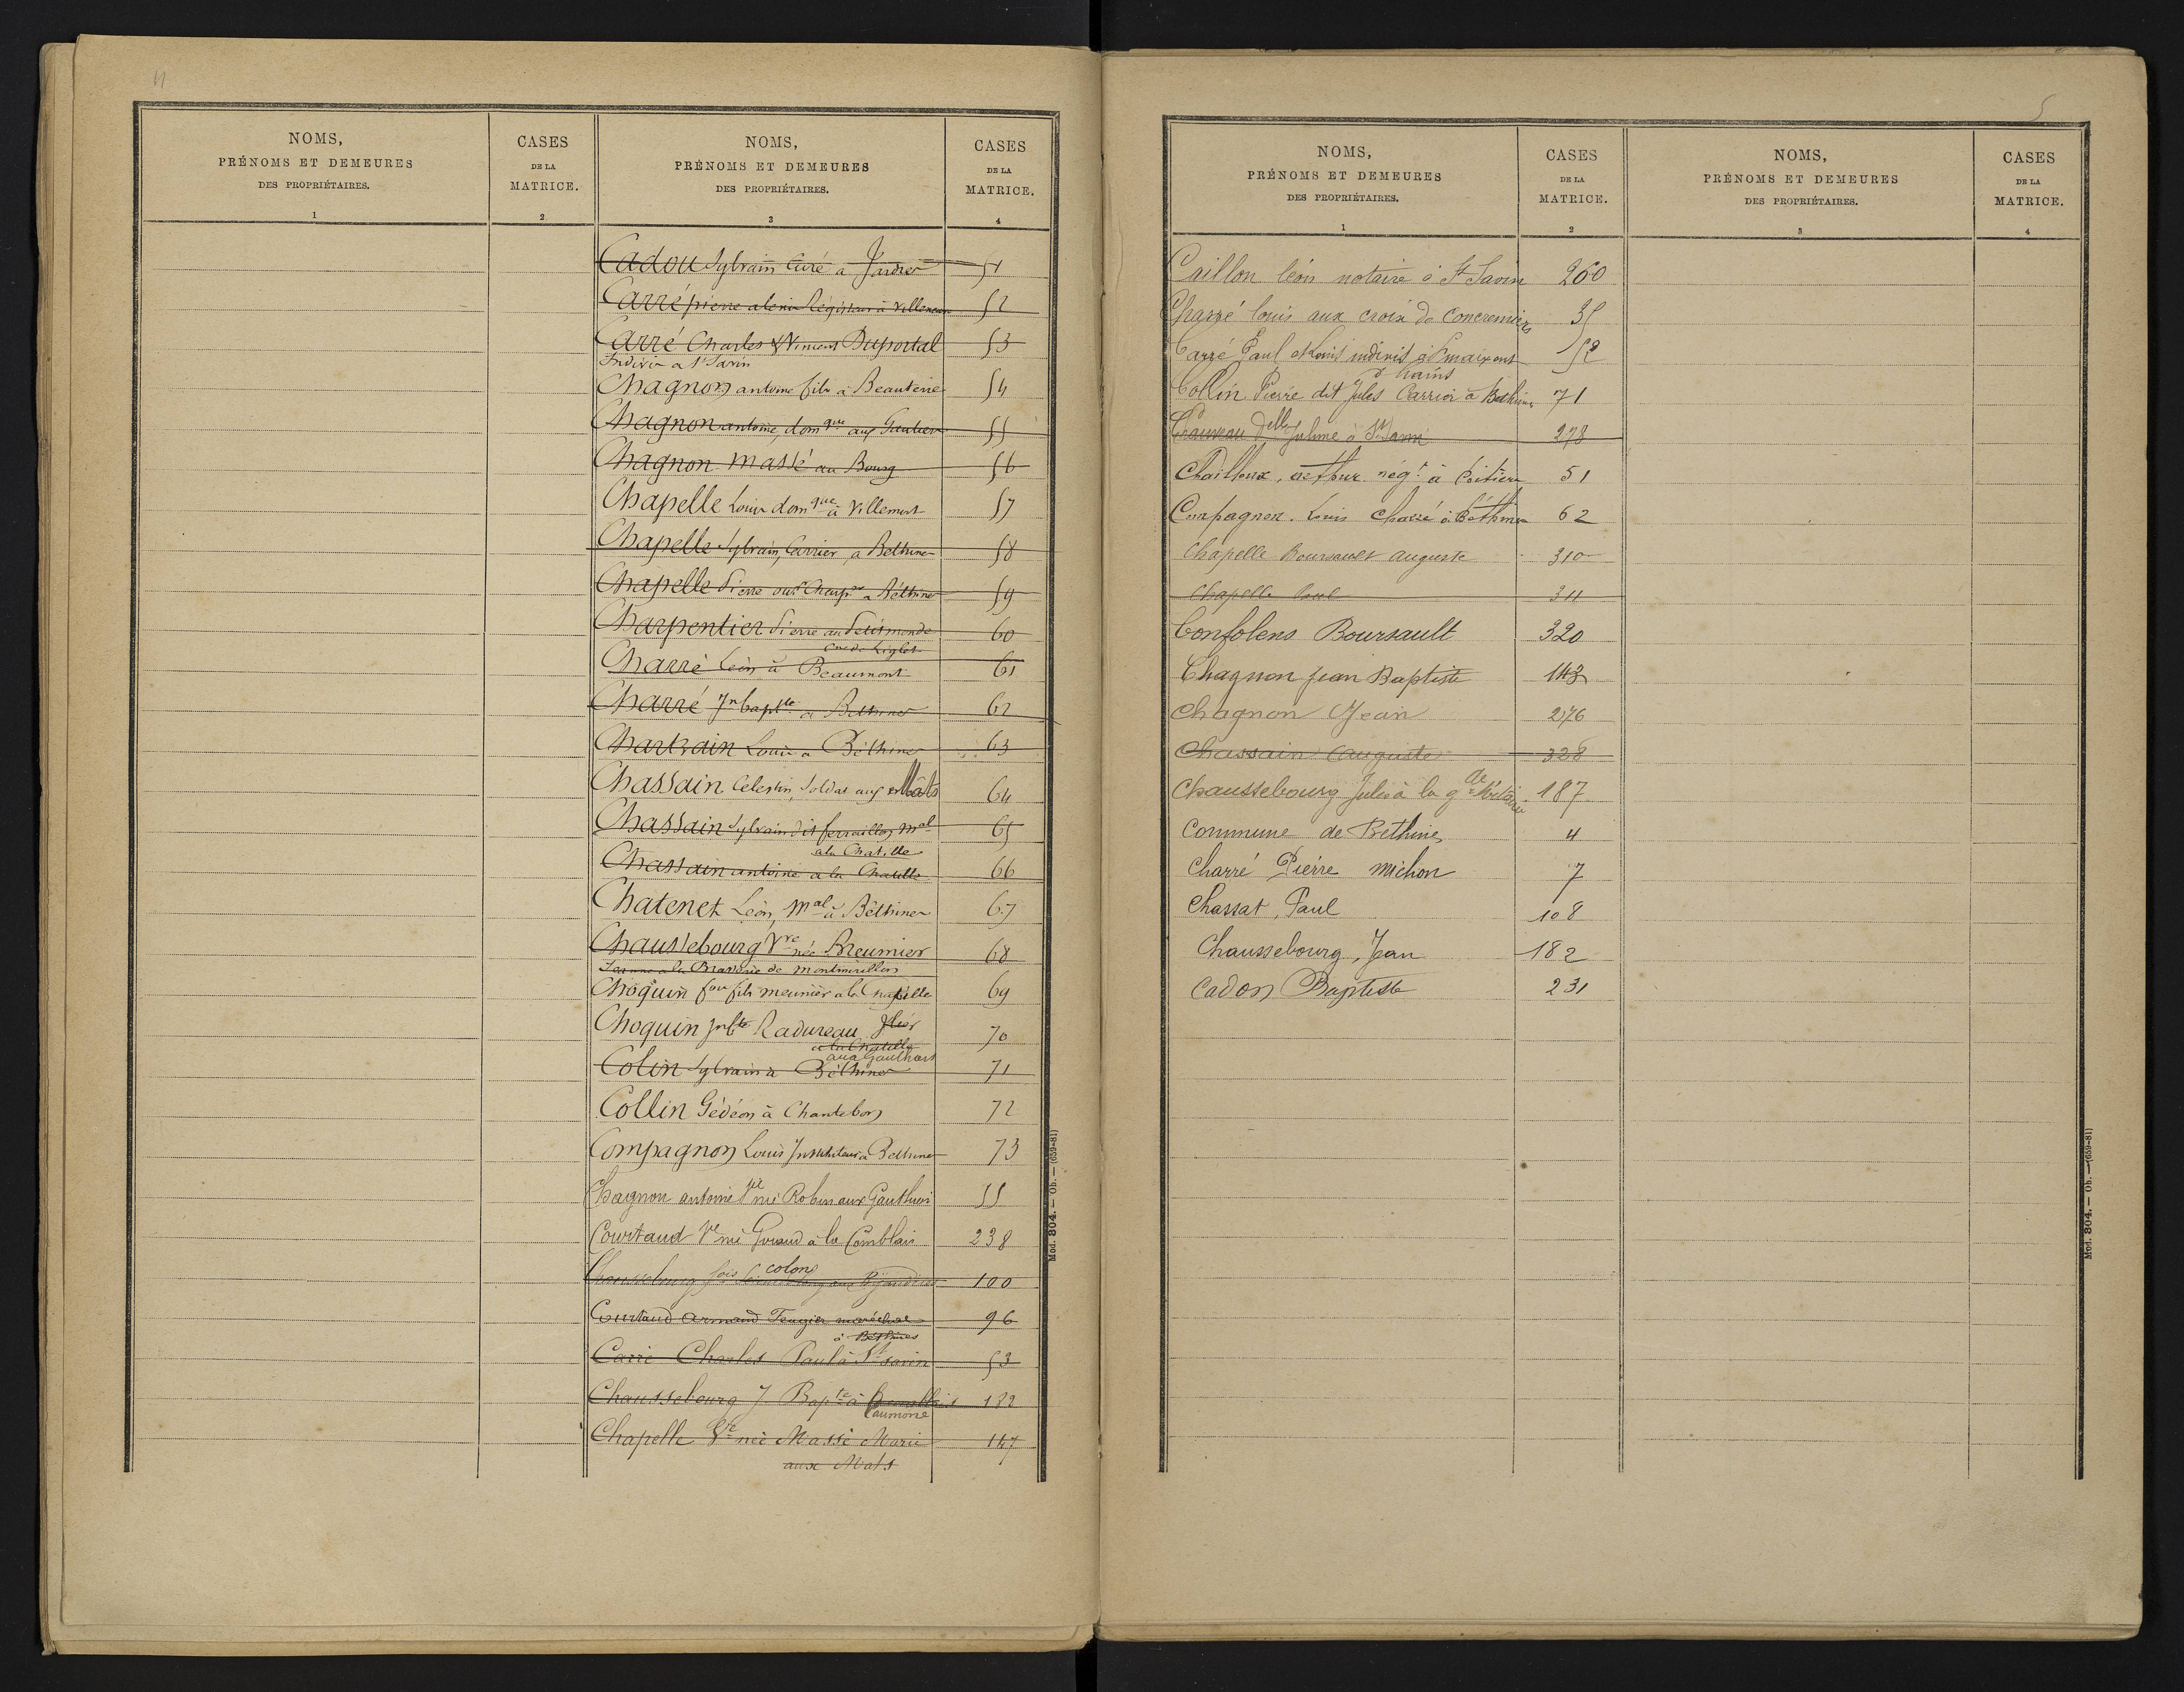 4
NOMS,
PRÉNOMS ET DEMEURES
DES PROPRIÉTAIRES.
1
CASES
DE LA
MATRICE.
2
NOMS,
PRÉNOMS ET DEMEURES
DES PROPRIÉTAIRES.
3
CASES
DE LA
MATRICE.
4
Cadou Sylvain Curé à Jardres 51
Carré pierre alexis Régisseur à Villeneuve 52
Carré Charles & Vincent Duportal 53
Indivis a St Savin
Chagnon antoine fils à Beauterre 54
Chagnon antoine, domque aux Gautiers 55
Chagnon Massé au Bourg 56
Chapelle Louis domque à Villemort 57
Chapelle Sylvain, Carrier, a Bethines 58
Chapelle Pierre Charp a Béthines 59
Charpentier Pierre au Petit monde 60
Cne de Liglet
Charré Léon à Beaumont 61
Charré Jn bapte a Bethines 62
Chartrain Louis a Béthines 63
Chassain Celestin, Soldat aux Mâts 64
Chassain Sylvain dit ferraillon mal 65
a la Chatille
Chassain antoine a la Chatille 66
Chatenet Léon, mal à Béthines 67
Chaussebourg Vve née Breumier 68
Jeanne a la de montmorillon
Choquin fois fils meunier a la Chatille 69
Choquin Jnbte Radureau 70
a la Chatille
aux Gauthiers
Colin Sylvain à Béthines 71
Collin Gédéon à Chantebon 72
Compagnon Louis Instituteur à Bethines 73
Chagnon antoine Ve née Robin aux Gauthiers 55
Courtaud Ve née Giraud à la Comblais 238
colons
Chaussebourg fois 100
Courtaud Armand Teugier maréchal 96
à Béthines
Carré Charles Paul à St Savin 53
Chaussebourg J Bapte à 182
Laumone
Chapelle Vve née Massé Marie 147
aux Mats
Mod. 804. — Ob. — (659-81)
5
NOMS,
PRÉNOMS ET DEMEURES
DES PROPRIÉTAIRES.
1
CASES
DE LA
MATRICE.
2
NOMS,
PRÉNOMS ET DEMEURES
DES PROPRIÉTAIRES.
3
CASES
DE LA
MATRICE.
4
Caillon léon notaire à St Savin 260
Charré louis aux croix de Concremiers 35
Carré Paul et Louis indivis à 52
Collin Pierre dit Jules Carrier à Béthines 71
Delle Juline à St Savin 278
Chailloux, arthur négt à Poitiers 51
Compagnon Louis Charré à Béthines 62
Chapelle Boursault auguste 310
Chapelle Paul 311
Confolens Boursault 320
Chagnon Jean Baptiste 143
Chagnon Jean 276
Chassain Auguste 328
Chaussebourg Jules à la gde Métairie 187
Commune de Bethines 4
Charré Pierre Michon 7
Chassat, Paul 108
Chaussebourg, Jean 182
Cadon Baptiste 231
Mod. 804. — Ob. — (659-81)